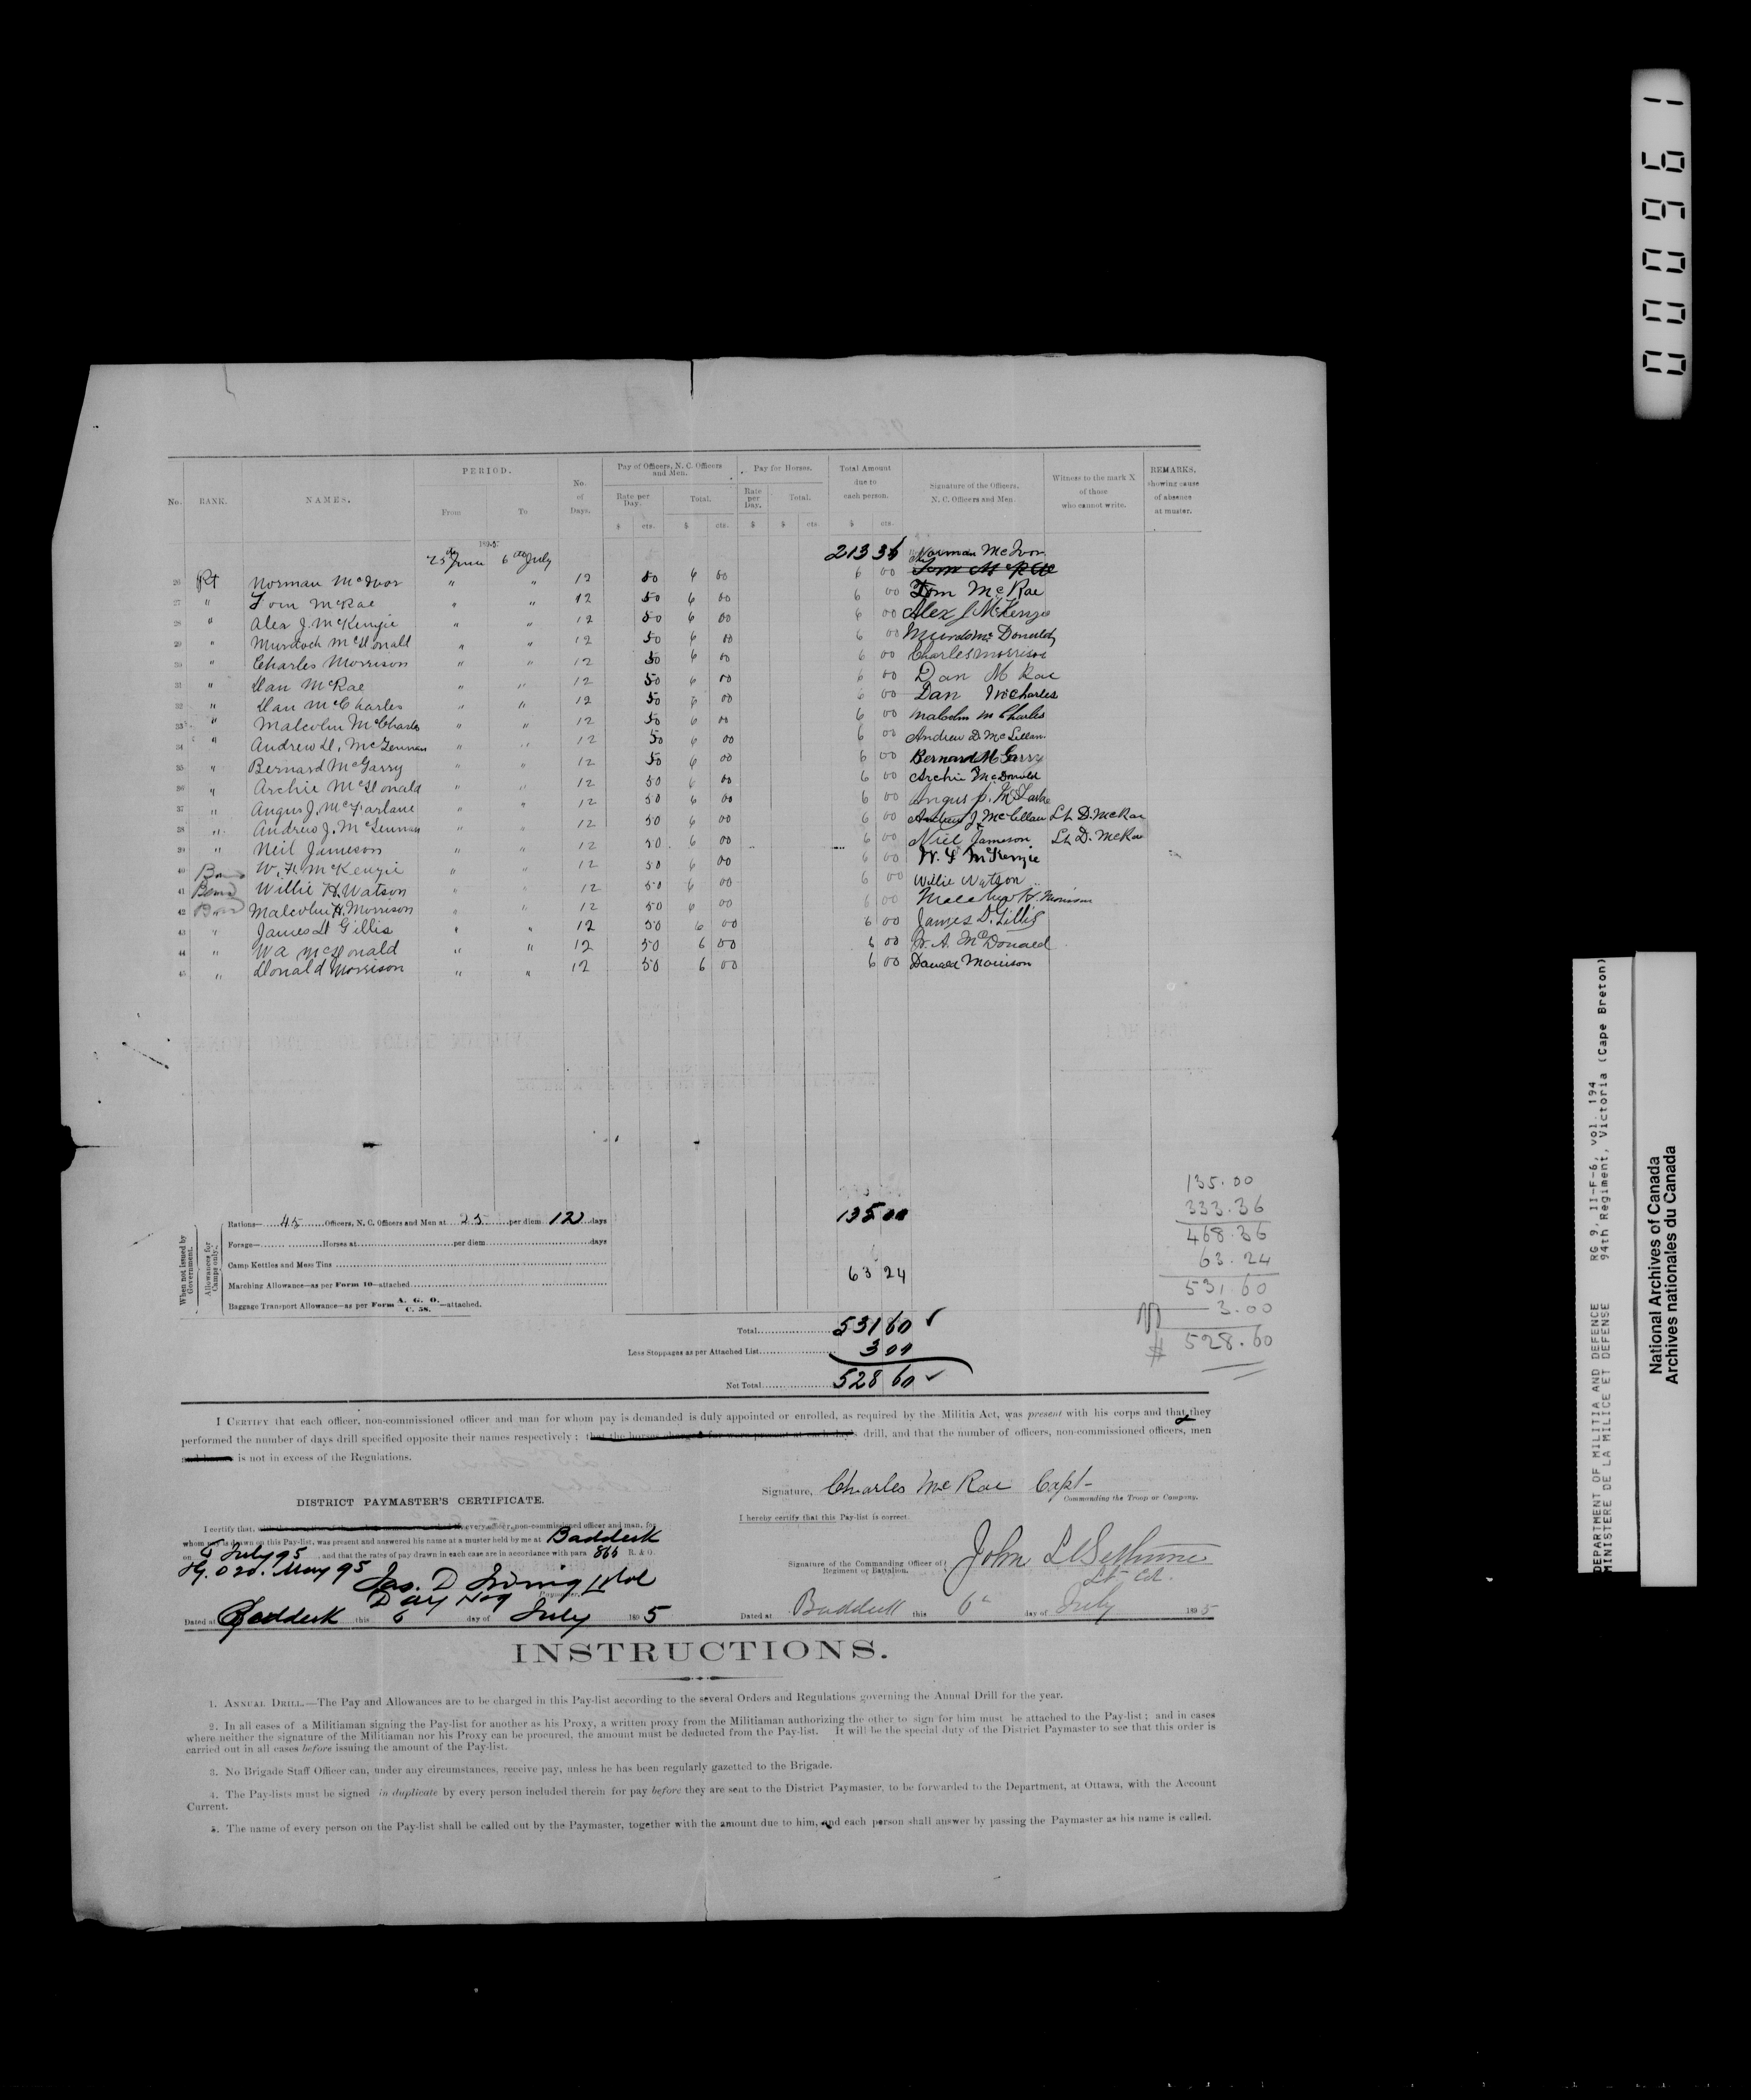 No. RANK. NAMES. PERIOD. From To No. of Days. Pay of Officers, N. C. Officers and Men. Rate per Day. $ cts. Total. $ cts. Pay for Horses. Rate per Day. $ Total. $ cts. Total Amount due to each person. $ cts. Signature of the Officers, N. C. Officers and Men. Witness to the mark X of those who cannot write. REMARKS. showing cause of absence at muster.
1895
25th June 6th July 213 36 Norman McIvor
26 Pt Norman McIvor " " 12 50 6 00 6 00
27 " Tom McRae " " 12 50 6 00 6 00 Tom McRae
28 " Alex J. McKenzie " " 12 50 6 00 6 00 Alex J McKenzie
29 " Murdoch McDonald " " 12 50 6 00 6 00 Murdo Mc Donald
30 " Charles Morrison " " 12 50 6 00 6 00 Charles Morrison
31 " Dan McRae " " 12 50 6 00 6 00 Dan M Rae
32 " Dan McCharles " " 12 50 6 00 6 00 Dan McCharles
33 " Malcolm McCharles " " 12 50 6 00 6 00 Malcolm m Charles
34 " Andrew D. McLennan " " 12 50 6 00 6 00 Andrew D McLellan
35 " Bernard McGarry " " 12 50 6 00 6 00 Bernard M Garry
36 " Archie McDonald " " 12 50 6 00 6 00 Archie McDonald
37 " Angus J. McFarlane " " 12 50 6 00 6 00 Angus J.
38 " Andrew J. McLennan " " 12 50 6 00 6 00 Andrew J McLellan Lt D. McRae
39 " Neil Jameson " " 12 50 6 00 6 00 Niel Jameson Lt D. McRae
40 Band W. F. McKenzie " " 12 50 6 00 6 00 W. F McKenzie
41 Band Willie H. Watson " " 12 50 6 00 6 00 Willie Watson
42 Band Malcolm H. Morrison " " 12 50 6 00 6 00 H. Morrison
43 " James D Gillis " " 12 50 6 00 6 00 James D. Gillis
44 " W A McDonald " " 12 50 6 00 6 00 W. A. McDonald
45 " Donald Morrison " " 12 50 6 00 6 00 Donald Morrison
When not issued by Government.
Allowances for Camps only.
Rations— 45 Officers, N. C. Officers and Men at 25 per diem 12 days 135 00
Forage— Horses at per diem days
Camp Kettles and Mess Tins
Marching Allowance—as per Form 10—attached 63 24
Baggage Transport Allowance—as per Form A. G. O. C. 58. —attached.
Total 531 60 ✓
Less Stoppages as per Attached List 3 00
Net Total 528 60 ✓
135.00
333.36
468.36
63.24
531.60
3.00
$ 528.60
I CERTIFY that each officer, non-commissioned officer and man for whom pay is demanded is duly appointed or enrolled, as required by the Militia Act, was present with his corps and that they
performed the number of days drill specified opposite their names respectively ; that the horses charged for were present at each day's drill, and that the number of officers, non-commissioned officers, men
and horses is not in excess of the Regulations.
Signature, Charles McRae Capt
Commanding the Troop or Company.
I hereby certify that this Pay-list is correct.
Signature of the Commanding Officer of Regiment or Battalion. John L Bethune
Lt Col.
Dated at Baddeck this 6th day of July 1895
DISTRICT PAYMASTER'S CERTIFICATE.
I certify that, every officer, non-commissioned officer and man, for
whom pay is drawn on this Pay-list, was present and answered his name at a muster held by me at Baddeck
on 5 July 95, and that the rates of pay drawn in each case are in accordance with para 866 R. & O.
May 95
Jas. D Irving Lt Col
Paymaster.
Dated at Baddeck this 6 day of July 1895
INSTRUCTIONS.
1. ANNUAL DRILL.—The Pay and Allowances are to be charged in this Pay-list according to the several Orders and Regulations governing the Annual Drill for the year.
2. In all cases of a Militiaman signing the Pay-list for another as his Proxy, a written proxy from the Militiaman authorizing the other to sign for him must be attached to the Pay-list ; and in cases
where neither the signature of the Militiaman nor his Proxy can be procured, the amount must be deducted from the Pay-list. It will be the special duty of the District Paymaster to see that this order is
carried out in all cases before issuing the amount of the Pay-list.
3. No Brigade Staff Officer can, under any circumstances, receive pay, unless he has been regularly gazetted to the Brigade.
4. The Pay-lists must be signed in duplicate by every person included therein for pay before they are sent to the District Paymaster, to be forwarded to the Department, at Ottawa, with the Account
Current.
5. The name of every person on the Pay-list shall be called out by the Paymaster, together with the amount due to him, and each person shall answer by passing the Paymaster as his name is called.
0000961
DEPARTMENT OF MILITIA AND DEFENCE RG 9, II-F-6, vol. 194
MINISTERE DE LA MILICE ET DEFENSE 94th Regiment, Victoria (Cape Breton)
National Archives of Canada
Archives nationales du Canada